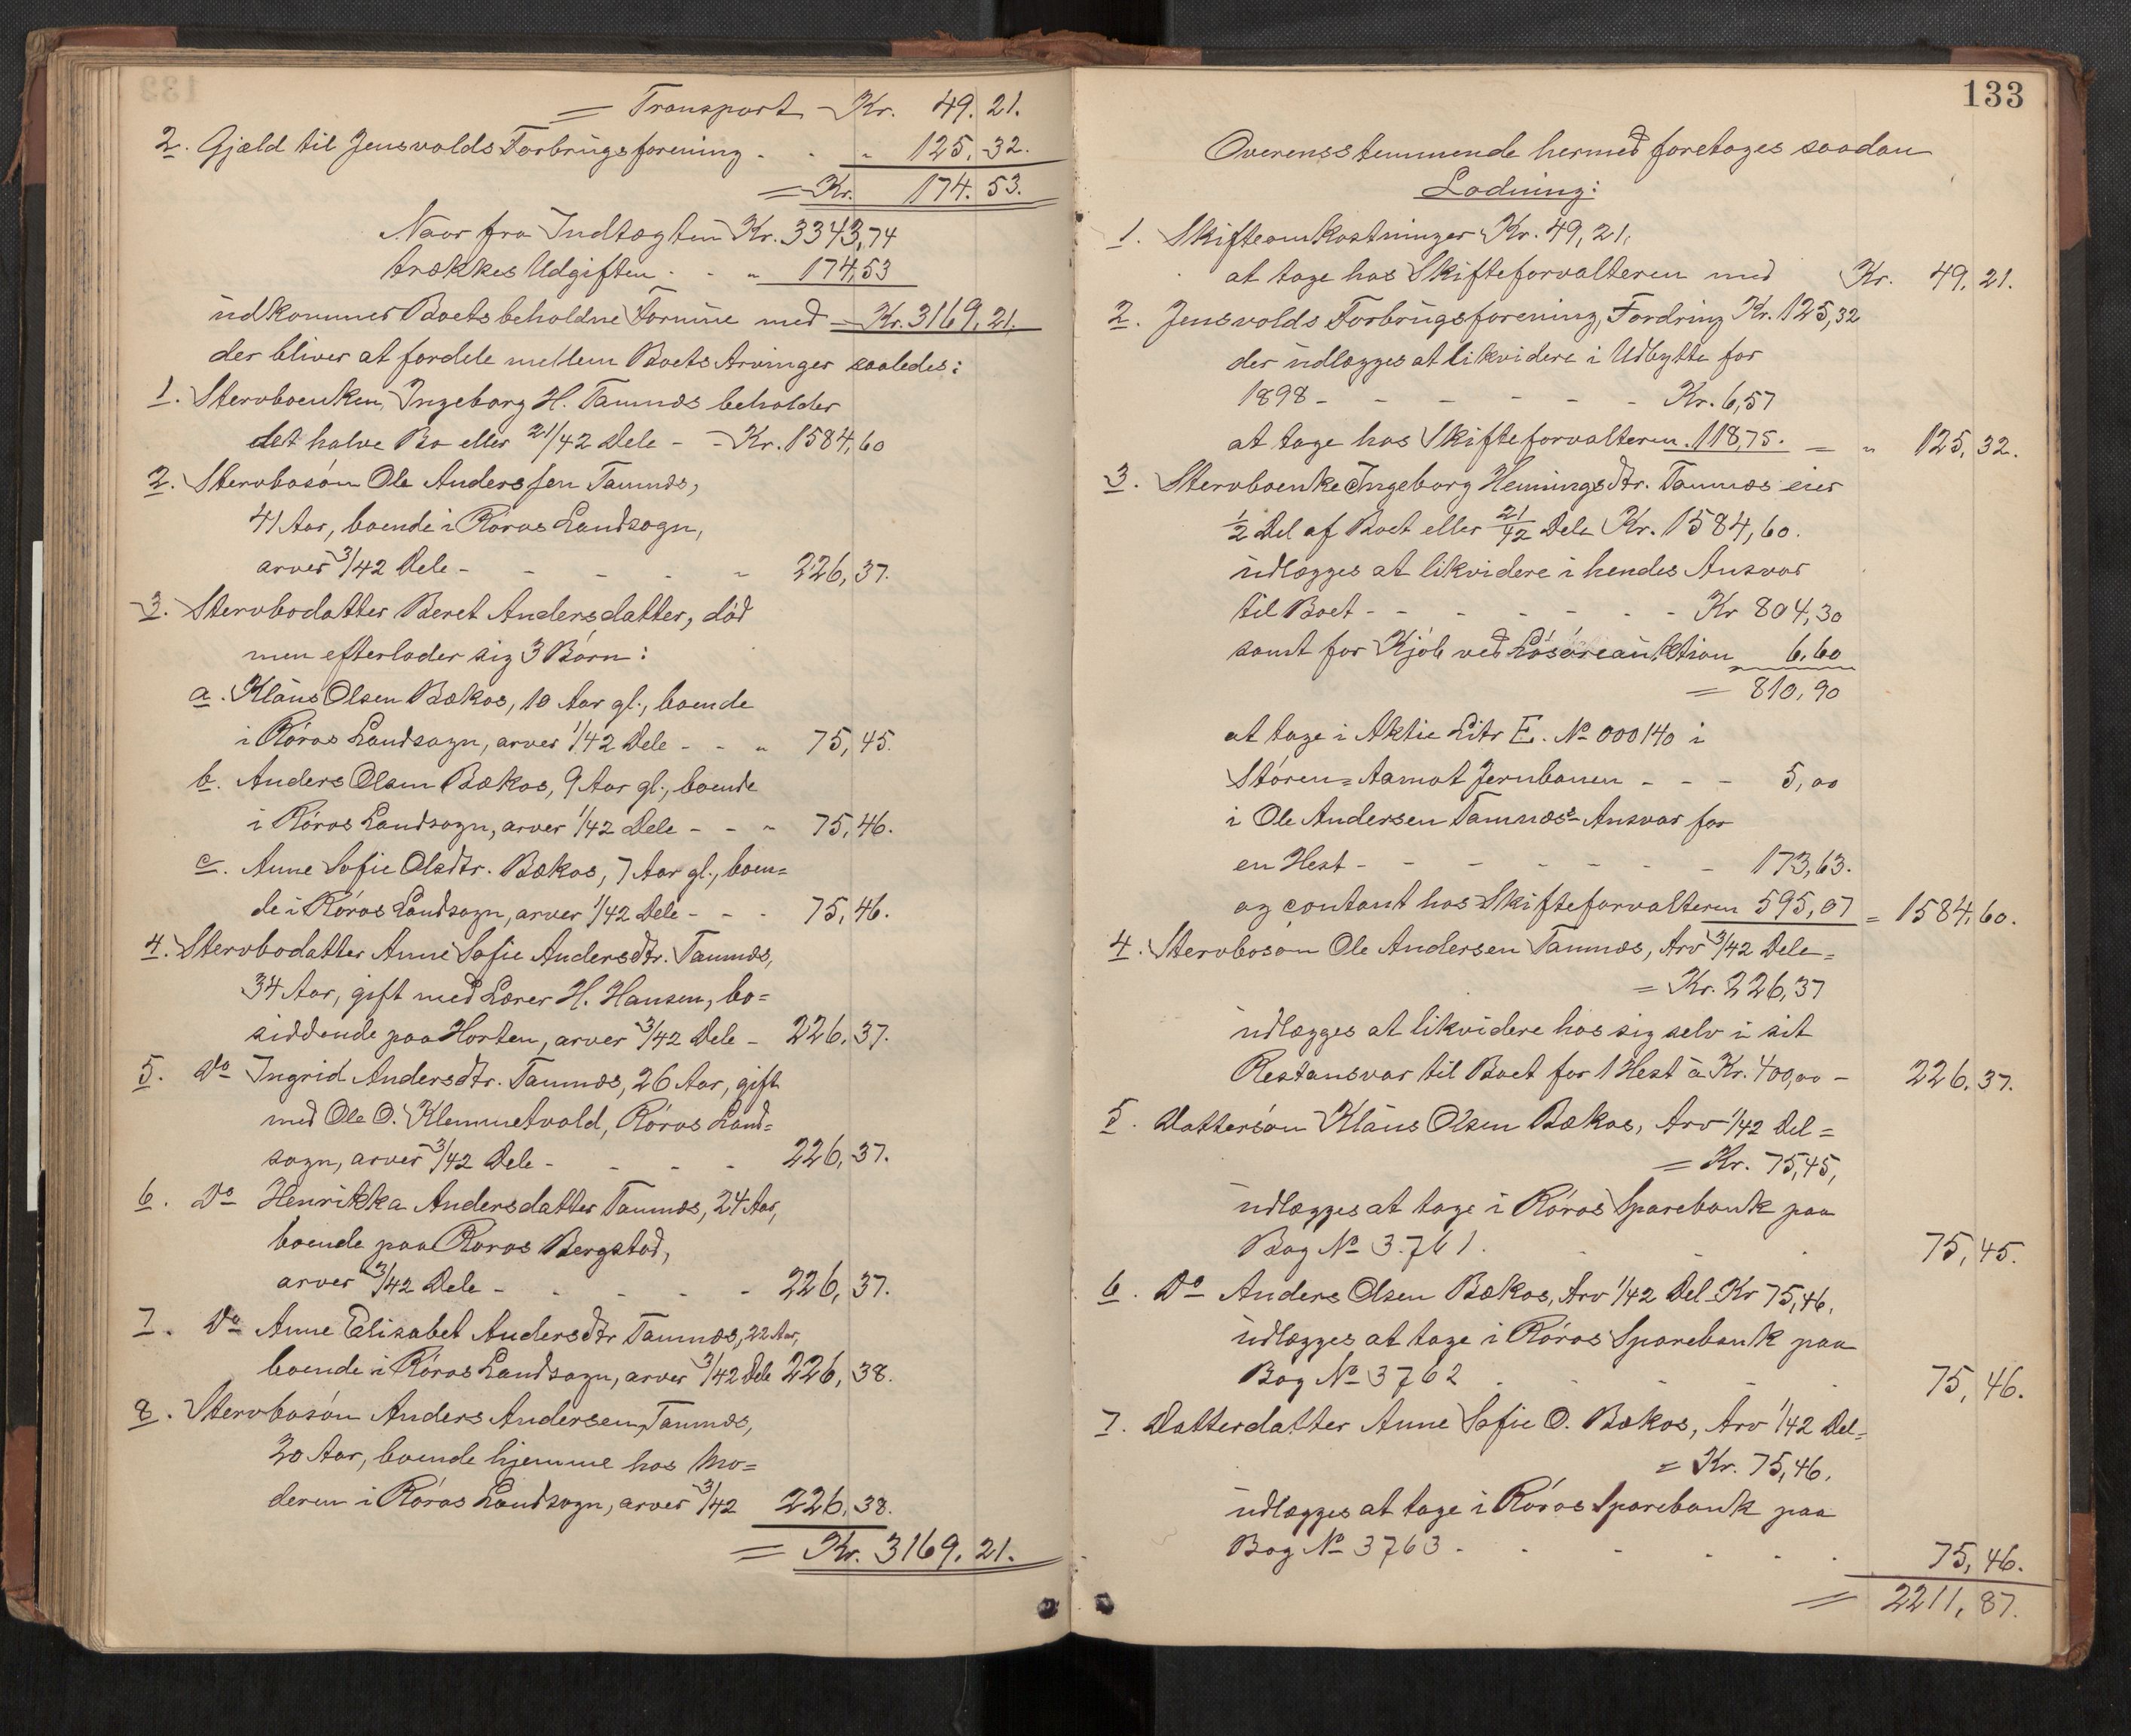 = Transport - Kr. 49. 21.
2. Gjæld til Jensvolds Forbrugsforening - - " 125, 32.
= Kr. 174. 53.
Naar fra Indtægten Kr. 3343,74
trækkes Udgiften - - " 174,53
udkommer Boets beholdne Formue med - Kr. 3169, 21.
der bliver at fordele mellem Boets Arvinger saaledes:
1. Stervboenken, Ingeborg H. Tamnæs beholder
det halve Bo eller 21/42 Dele - - Kr. 1584,60
2. Stervbosön Ole Anderssen Tamnæs,
41 Aar, boende i Röros Landsogn,
arver 3/42 Dele - - - - " 226, 37.
3. Stervbodatter Beret Andersdatter, död
men efterlader sig 3 Börn:
a. Klaus Olsen Bækos, 10 Aar gl., boende
i Röros Landsogn, arver 1/42 Dele - - " 75, 45.
b. Anders Olsen Bækos, 9 Aar gl., boende
i Röros Landsogn, arver 1/42 Dele - - " 75, 46.
c. Anne Sofie Olsdtr. Bækos, 7 Aar gl., boen=
de i Röros Landsogn, arver 1/42 Dele - - - 75, 46.
4. Stervbodatter Anne Sofie Andersdtr. Tamnæs,
34 Aar, gift med Lærer H. Hansen, bo=
siddende paa Horten, arver 3/42 Dele - 226, 37.
5. Do Ingrid Andersdtr. Tamnæs, 26 Aar, gift
med Ole O. Klemmetvold, Röros Land=
sogn, arver 3/42 Dele - - - - 226, 37.
6. Do Henrikka Andersdatter Tamnæs, 24 Aar,
boende paa Röros Bergstad,
arver 3/42 Dele - - - - - 226, 37.
7. Do Anne Elisabet Andersdtr Tamnæs, 22 Aar,
boende i Röros Landsogn, arver 3/42 Dele 226, 38.
8. Stervbosön Anders Andersen Tamnæs,
20 Aar, boende hjemme hos Mo=
deren i Röros Landsogn, arver 3/42 226, 38.
= Kr. 3169. 21.
133
Overensstemmende hermed foretages saadan
Lodning:
1. Skifteomkostninger Kr. 49,21,
at tage hos Skifteforvalteren med Kr. 49, 21.
2. Jensvolds Forbrugsforening, Fordring Kr. 125,32
der udlægges at likvidere i Udbytte for
1898 - - - - - - Kr. 6,57
at tage hos Skifteforvalteren . 118,75. = " 125, 32.
3. Stervboenke Ingeborg Henningsdtr. Tamnæs eier
1/2 Del af Boet eller 21/42 Dele Kr. 1584,60.
udlægges at likvidere i hendes Ansvar
til Boet - - - - - - - Kr 804,30
samt for Kjöb ved Lösöreauktion 6,60
= 810,90
at tage i Aktie Litr E. No 000140 i
Stören=Aamot Jernbanen - - - 5,00
i Ole Andersen Tamnæs' Ansvar for
en Hest - - - - - - - 173,63.
og contant hos Skifteforvalteren 595,07 = 1584,60.
4. Stervbosön Ole Andersen Tamnæs, Arv 3/42 Dele=
= Kr. 226,37
udlægges at likvidere hos sig selv i sit
Restansvar til Boet for 1 Hest à Kr. 400,00 - 226, 37.
5. Dattersön Klaus Olsen Bækos, Arv 1/42 Del=
= Kr. 75,45,
udlægges at tage i Röros Sparebank paa
Bog No 3761. - - - 75, 45.
6. Do Anders Olsen Bækos, Arv 1/42 Del Kr 75,46,
udlægges at tage i Röros Sparebank paa
Bog No 3762 - - - - - 75, 46.
7. Datterdatter Anne Sofie O. Bækos, Arv 1/42 Del=
= Kr. 75,46,
udlægges at tage i Röros Sparebank paa
Bog No 3763 - - - - - - 75, 46.
= 2211, 87.